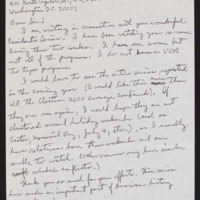 400 North Capitol St, NW
Washington DC 20001
Dear Sirs:
I am writing in connection with your wonderful
Presidents Series. I have been watching your re-runs
during these two weeks. I have seen some but
not all of the programs. I do not have a VCR
to tape programs.
I would love to see the entire series repeated
in the coming year (I would like them more than
all the election 2000 coverage combined). If they
are run again, I would hope they are not
clustered around holiday weekends (such as
Easter, Memorial Day, July 4, etc.), as I usually
have relatives from those weekends and am
unable to watch. (Other viewers may have similar
schedule conflicts.)
Thank you so much for your efforts. This series
have an important part of American history